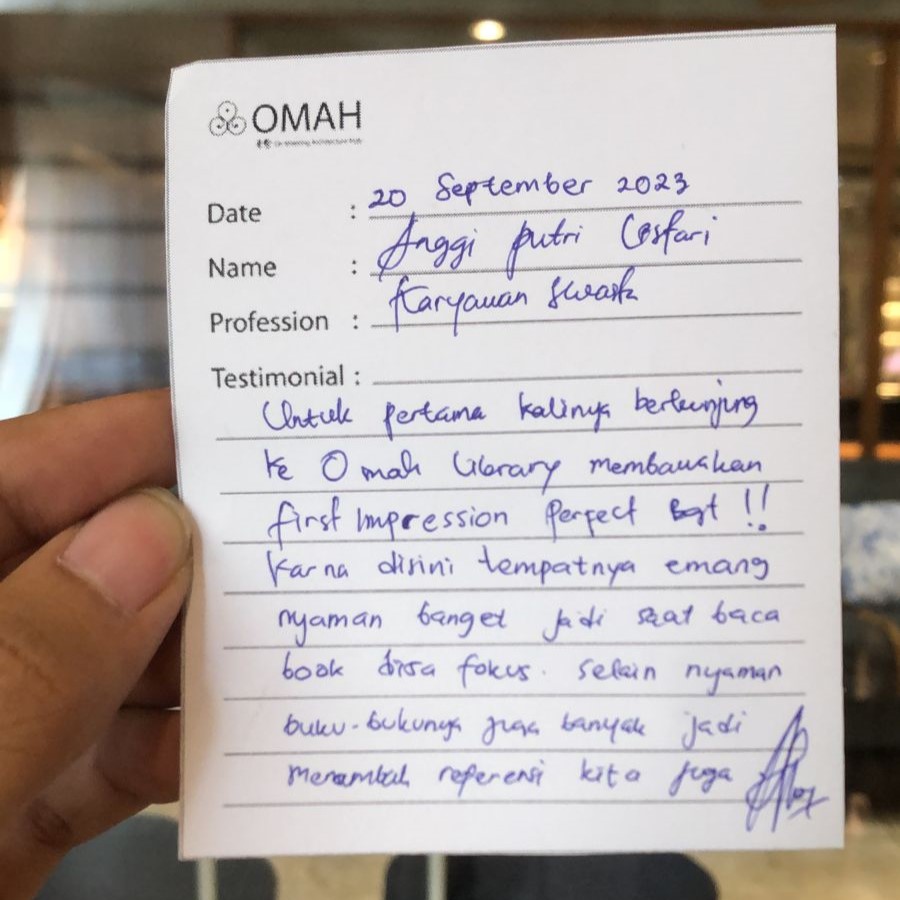 OMAH
Date : 20 September 2023
Name : Anggi putri Cosfari
Profession : Karyawan Swasta
Testimonial :
Untuk pertama kalinya berkunjung
ke Omah Library membawakan
first Impression Perfect Bgt !!
karna disini tempatnya emang
nyaman banget jadi saat baca
book bisa fokus. selain nyaman
buku-bukunya juga banyak jadi
menambah referensi kita juga